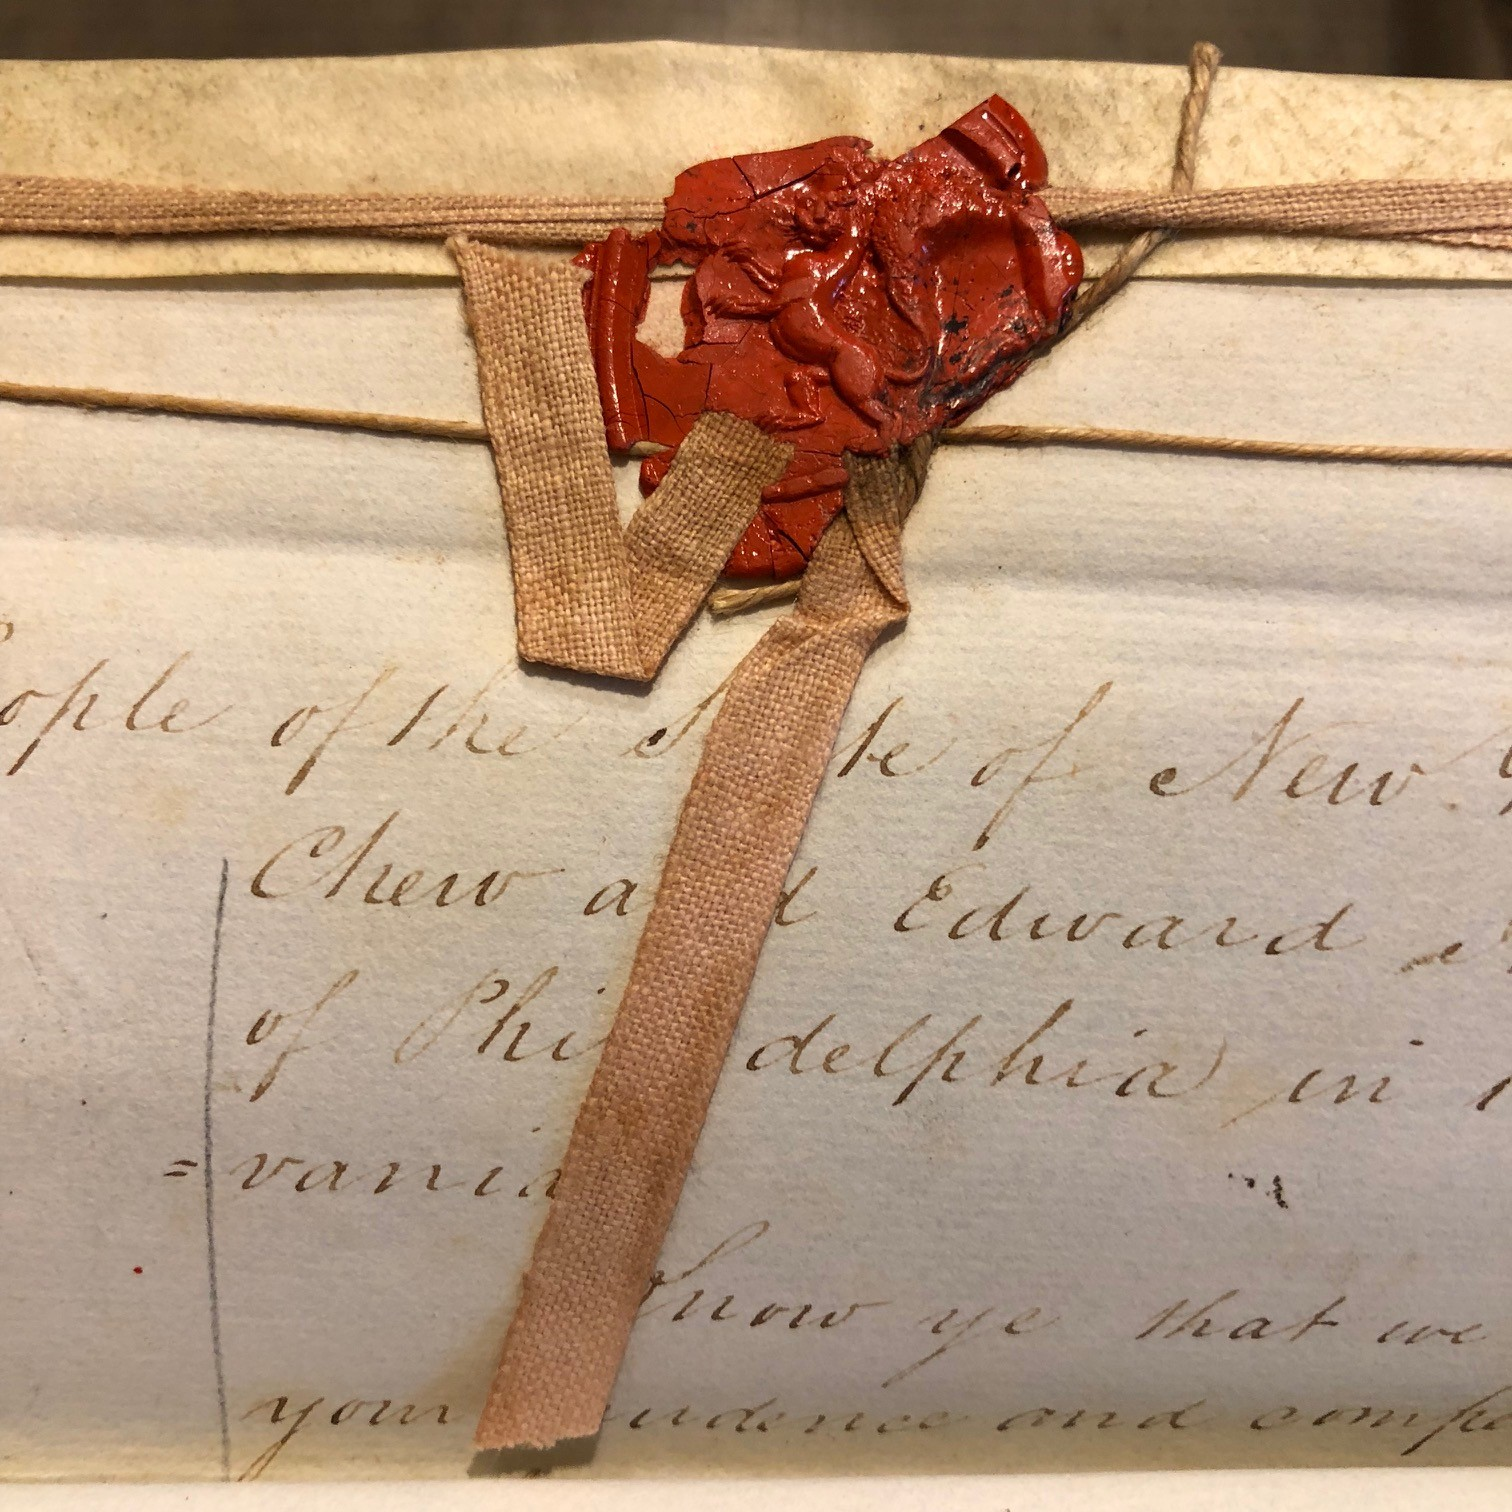 ople of the S te of New
Chew a d Edward
of Phi delphia in
= vania
Know ye that we
your udence and comp